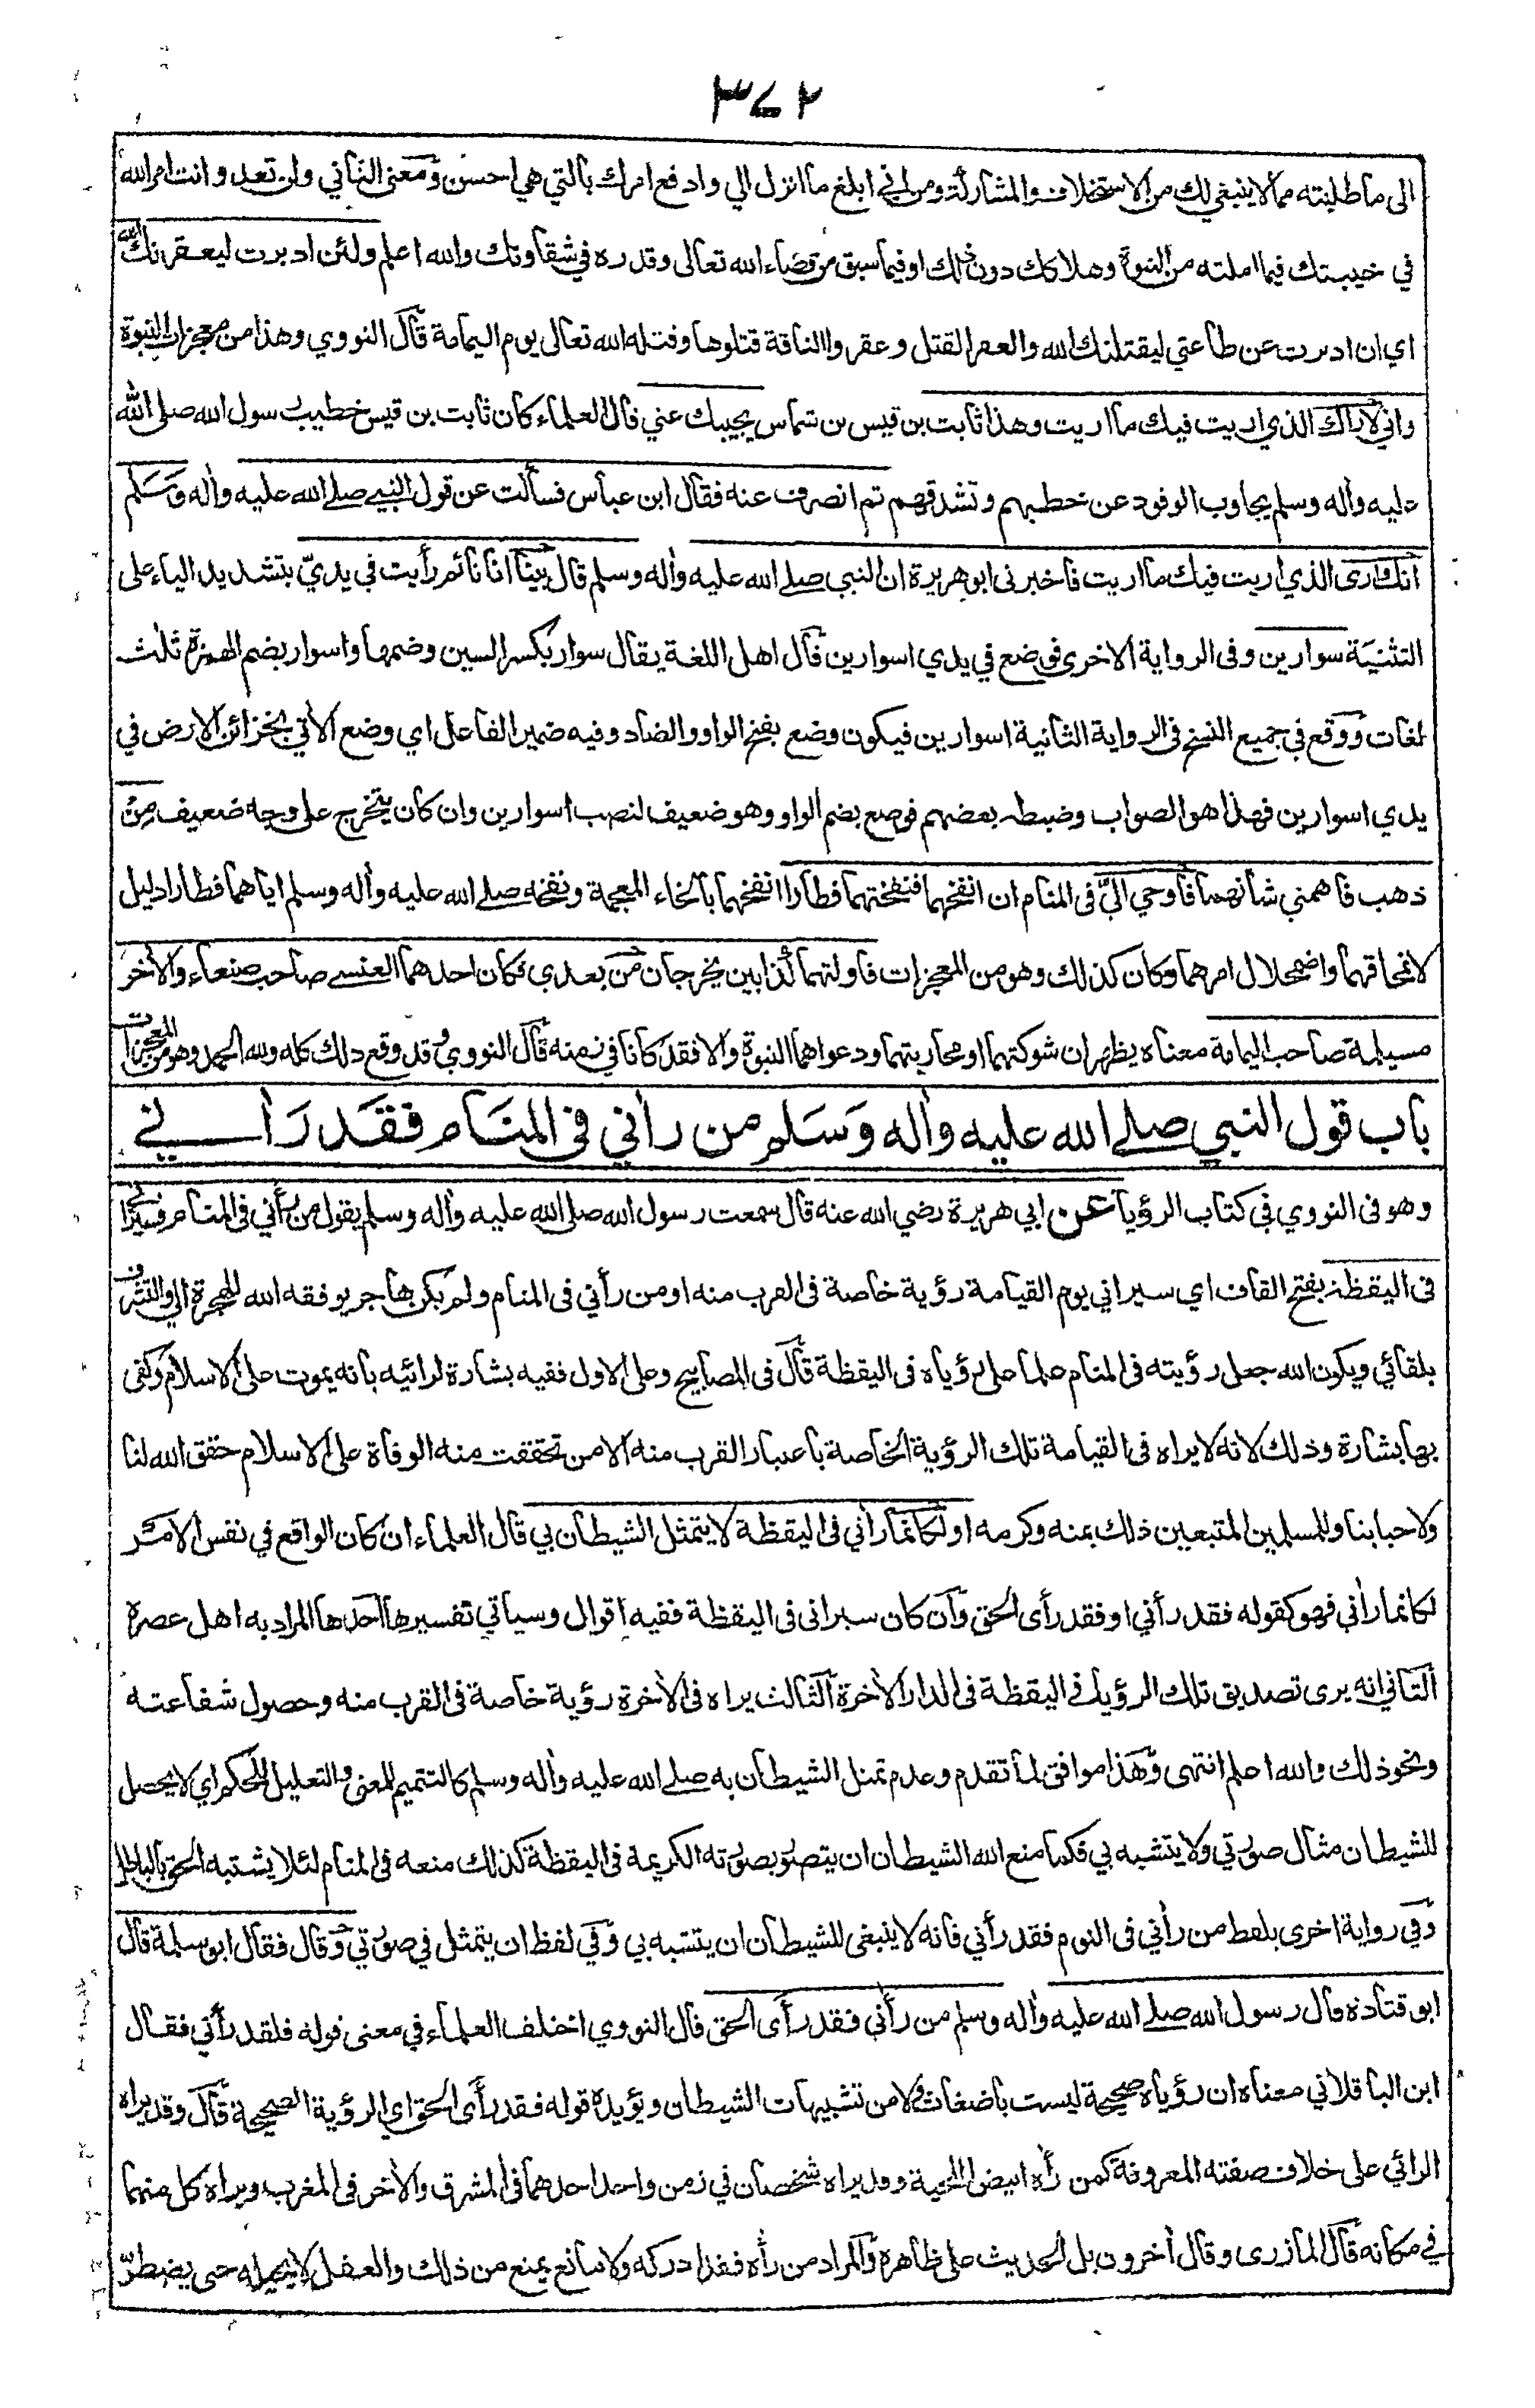 ٣٧٢
الى ما طلبته مما لا ينبغي لك من الاستخلاف والمشاركة ومن اني ابلغ ما انزل الي وادفع امرك بالتي هي احسن ومعنى الثاني ولن تعد وانت امر الله
في خيبتك فيما املته من النبوة وهلاكك دون ذلك او فيما سبق من قضاء الله تعالى وقدره في شقاوتك والله اعلم ولئن ادبرت ليعقرنك الله
اي ان ادبرت عن طاعتي ليقتلنك الله والعقر القتل وعقروا الناقة قتلوها وقتله الله تعالى يوم اليمامة قال النووي وهذا من معجزات النبوة
واني لاراك الذي اريت فيك ما اريت وهذا ثابت بن قيس بن شماس يجيبك عني قال العلماء كان ثابت بن قيس خطيب رسول الله صلى الله
عليه واٰله وسلم يجاوب الوفود عن خطبهم وتشدقهم ثم انصرف عنه فقال ابن عباس فسألت عن قول النبي صلى الله عليه واٰله وسلم
انك ارى الذي اريت فيك ما اريت فاخبرني ابو هريرة ان النبي صلى الله عليه واٰله وسلم قال بينا انا نائم رأيت في يديّ بتشديد الياء على
التثنية سوارين وفى الرواية الاخرى فوضع في يدي اسوارين قال اهل اللغة يقال سوار بكسر السين وضمها واسوار بضم الهمزة ثلث
لغات ووقع في جميع النسخ فى الرواية الثانية اسوارين فيكون وضع بفتح الواو والضاد وفيه ضمير الفاعل اي وضع الاٰتي بخزائن الارض في
يدي اسوارين فهذا هو الصواب وضبطه بعضهم فوضع بضم الواو وهو ضعيف لنصب اسوارين وان كان يتخرج على وجه ضعيف من
ذهب فاهمني شأنهما فأوحي اليّ فى المنام ان انفخهما فنفختهما فطارا انفخهما بالخاء المعجمة ونفخه صلى الله عليه واٰله وسلم اياهما فطارا دليل
لانمحاقهما واضمحلال امرهما وكان كذلك وهو من المعجزات فاولتهما كذابين يخرجان من بعدي فكان احدهما العنسي صاحب صنعاء والاٰخر
مسيلمة صاحب اليمامة معناه يظهران شوكتهما او محاربتهما ودعواهما النبوة والا فقد كانا في زمنه قال النووي وقد وقع ذلك كله ولله الحمد وهو من المعجزات
باب قول النبي صلى الله عليه واٰله وَسَلم من راٰني فى المنَام فقَد رَاٰني
وهو فى النووي في كتاب الرؤيا عن ابي هريرة رضي الله عنه قال سمعت رسول الله صلى الله عليه واٰله وسلم يقول من رأني فى المنام فسيراني
فى اليقظة بفتح القاف اي سيراني يوم القيامة رؤية خاصة فى القرب منه او من رأني فى المنام ولم يكن هاجر يوفقه الله للهجرة الي والتشرف
بلقائي ويكون الله جعل رؤيته فى المنام علما على رؤياه فى اليقظة قال فى المصابيح وعلى الاول ففيه بشارة لرائيه بانه يموت على الاسلام وكفى
بها بشارة وذلك لانه لا يراه فى القيامة تلك الرؤية الخاصة باعتبار القرب منه الا من تحققت منه الوفاة على الاسلام حقق الله لنا
ولاحبابنا وللمسلمين المتبعين ذلك بمنه وكرمه او لكأنما رأني فى اليقظة لا يتمثل الشيطان بي قال العلماء ان كان الواقع في نفس الامر
لكانما راٰني فهو كقوله فقد رأني او فقد رأى الحق وان كان سيراني فى اليقظة ففيه اقوال وسيأتي تفسيرها احدها المراد به اهل عصره
الثاني انه يرى تصديق تلك الرؤيا فى اليقظة فى الدار الاٰخرة الثالث يراه فى الاٰخرة رؤية خاصة فى القرب منه وحصول شفاعته
ونحو ذلك والله اعلم انتهى وهذا موافق لما تقدم وعدم تمثل الشيطان به صلى الله عليه واٰله وسلم كالتتميم للمعنى والتعليل للحكم اي لا يحصل
للشيطان مثال صورتي ولا يتشبه بي فكما منع الله الشيطان ان يتصور بصورته الكريمة فى اليقظة كذلك منعه فى المنام لئلا يشتبه الحق بالباطل
وفي رواية اخرى بلفظ من رأني فى النوم فقد رأني فانه لا ينبغي للشيطان ان يتشبه بي وفي لفظ ان يتمثل في صورتي وقال فقال ابو سلمة قال
ابو قتادة قال رسول الله صلى الله عليه واٰله وسلم من رأني فقد رأى الحق قال النووي اختلف العلماء في معنى قوله فلقد رأني فقال
ابن الباقلاني معناه ان رؤياه صحيحة ليست باضغاث ولا من تشبيهات الشيطان ويؤيده قوله فقد رأى الحق اي الرؤية الصحيحة قال وقد يراه
الرائي على خلاف صفته المعروفة كمن رأه ابيض اللحية وقد يراه شخصان في زمن واحد احدهما فى المشرق والاٰخر فى المغرب ويراه كل منهما
في مكانه قال المازرى وقال اٰخرون بل الحديث على ظاهره والمراد من رأه فقد ادركه ولا مانع يمنع من ذلك والعقل لا يحيله حتى يضطرّ